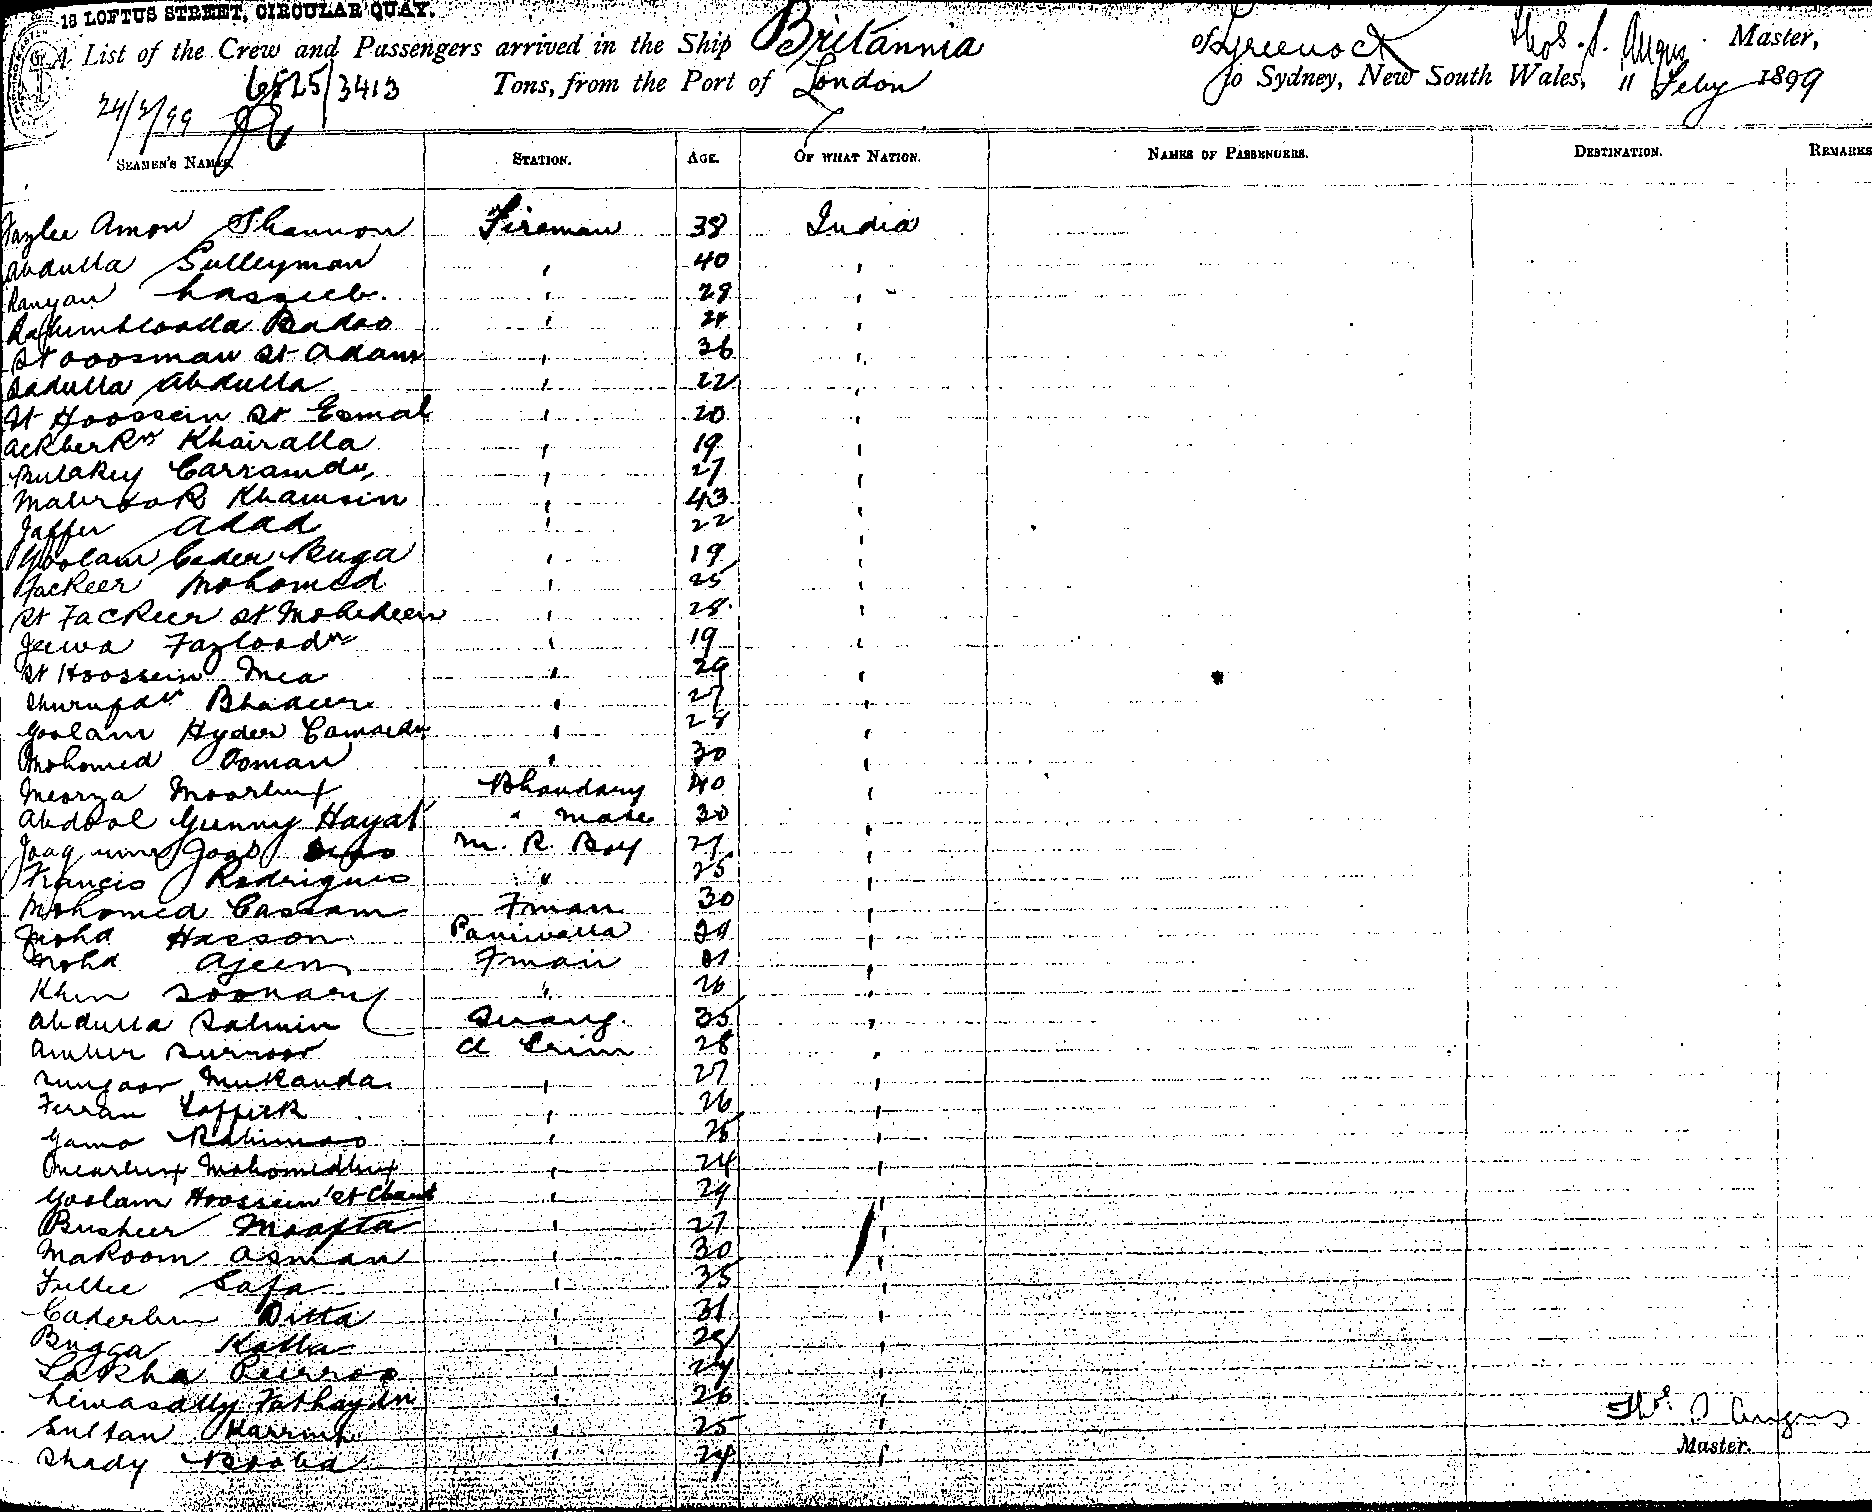 18 LOFTUS STREET, CIRCULAR QUAY.
A List of the Crew and Passengers arrived in the Ship Britannia of Greenock Thos. S. Angus Master,
6525/3413 Tons, from the Port of London to Sydney, New South Wales, 11 Feby 1899
24/2/99
SEAMEN'S NAMES. STATION. AGE. OF WHAT NATION. NAMES OF PASSENGERS. DESTINATION. REMARKS
Fazlee Amon Shannon Fireman 38 India
Abdulla Sulleyman " 40 "
Ranyan " 29 "
Rahimbloolla Badoo " 24 "
St Ooosman St Adam " 36 "
Sadulla Abdulla " 22 "
St Hoossein St Esmal " 20 "
Ackber Kn Khairalla " 19 "
Bulakey Carramdn " 27 "
Mabrook Khamsin " 43 "
Jaffer Adad " 22 "
Goolam Cader Buga " 19 "
Fackeer Mohomed " 25 "
St Fackeer St Mohedeen " 28 "
Jeewa Fazloodn " 19 "
St Hoossein Mea " 29 "
Shurufdn Bhadur " 27 "
Goolam Hyder Camardn " 28 "
Mohomed Osman " 30 "
Meorza Moorbux Bhandary 40 "
Abdool Gunny Hayat " mate 30 "
Joaquim Joao M. R. Boy 27 "
Francis Rodrigues " 25 "
Mohomed Cassam Fman 30 "
Mohd Hasson Paniwalla 39 "
Mohd Ajeem Fman 21 "
Khen Soonary " 26 "
Abdulla Salmin Serang 35 "
Amber Surroor C Trim 28 "
Sungoor Mukanda " 27 "
Ferran Toffeek " 26 "
Gama Rahimoo " 25 "
Mearbux Mahomedbux " 24 "
Goolam Hoossein St Chand " 29 "
Busheer Moofta " 27 "
Makoom Asman " 30 "
Fullee Safa " 35 "
Caderbux Ditta " 31 "
Bugga Kalla " 28 "
Lakha Peeroo " 24 "
Sewasally Fathaydn " 26 "
Sultan Karrim " 25 "
Shady " 24 "
Thos S Angus
Master.